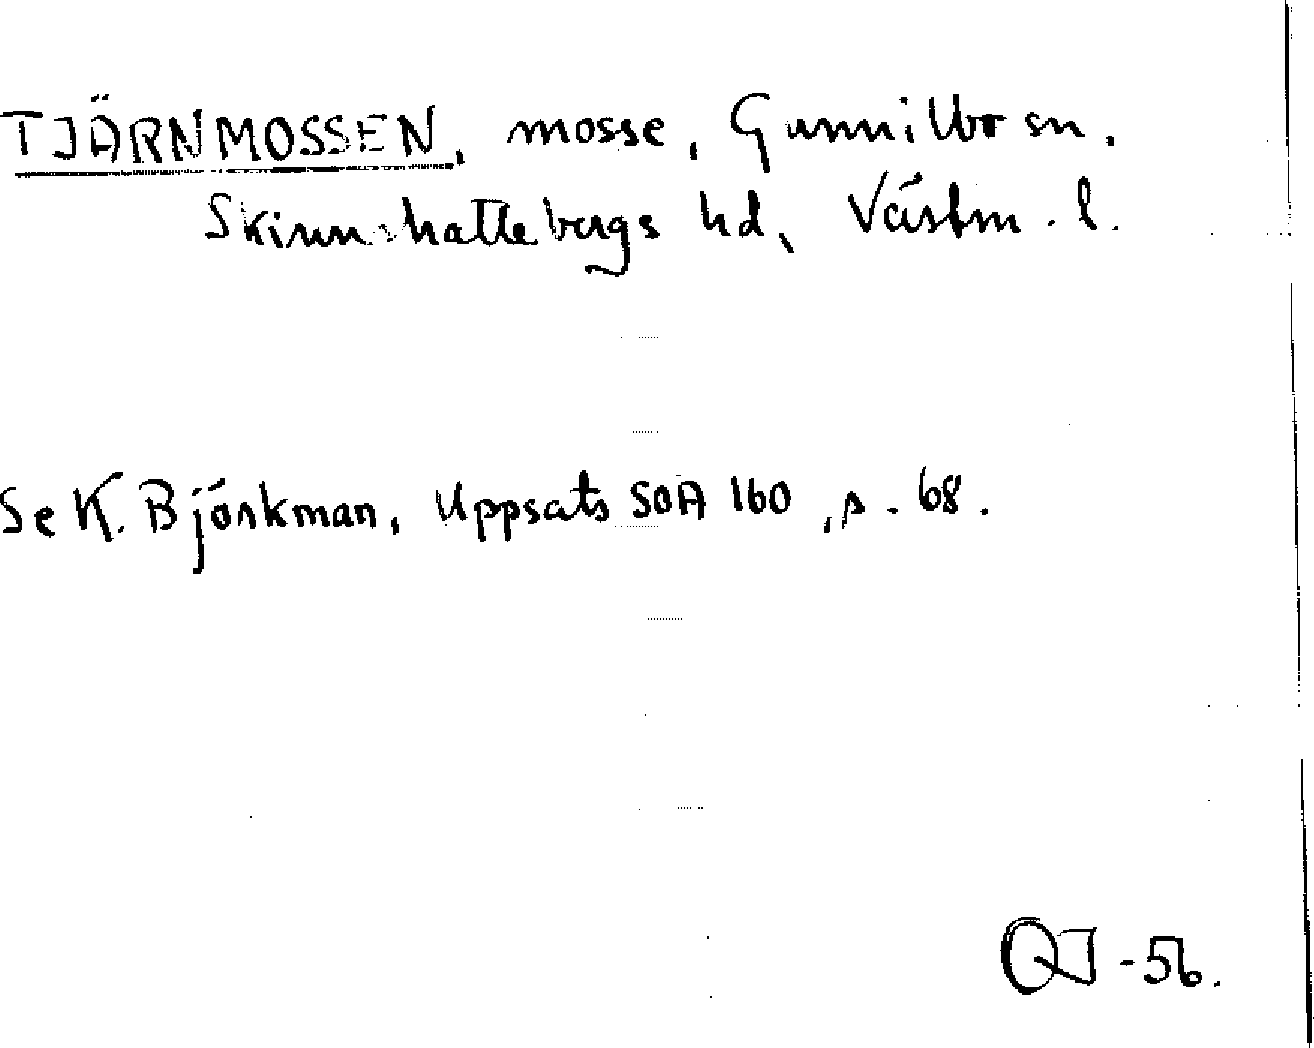 TJÄRNMOSSEN, mosse, Gunnilbo sn.
Skinnskattebergs hd, Västm. l.
Se K. Björkman, Uppsats SOA 160, s. 68.
-56.